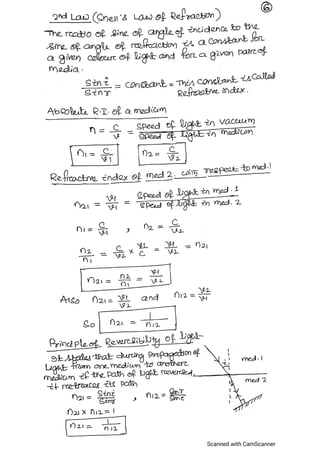 6
2nd Law (Snell's Law of Refraction)
The reatio of sine of angle of incidence to the
sine of angle of refraction is a constant for
a given colour of light and for a given pair of
media.
Sin i / Sin r = constant = This constant is called
Refractive index.
Absolute R.I. of a medium
n = C/v = Speed of light in vaccum / Speed of light in medium
n1 = C/v1   n2 = C/v2
Refractive index of med 2. with respect to med. 1
n21 = v1/v1 = Speed of light in med. 1 / Speed of light in med. 2
n1 = C/v1 , n2 = C/v2
n2/n1 = C/v2 × v1/C = v1/v2 = n21
n21 = n2/n1 = v1/v2
Also n21 = v1/v2 and n12 = v2/v1
So n21 = 1/n12
Principle of Reversibility of light-
It states that during propagation of
light from one medium to another
medium if the path of light reversed,
it retraces its path
med. 1
med 2
i
r
n21 = Sin i / Sin r , n12 = Sin r / Sin i
n21 × n12 = 1
n21 = 1/n12
Scanned with CamScanner